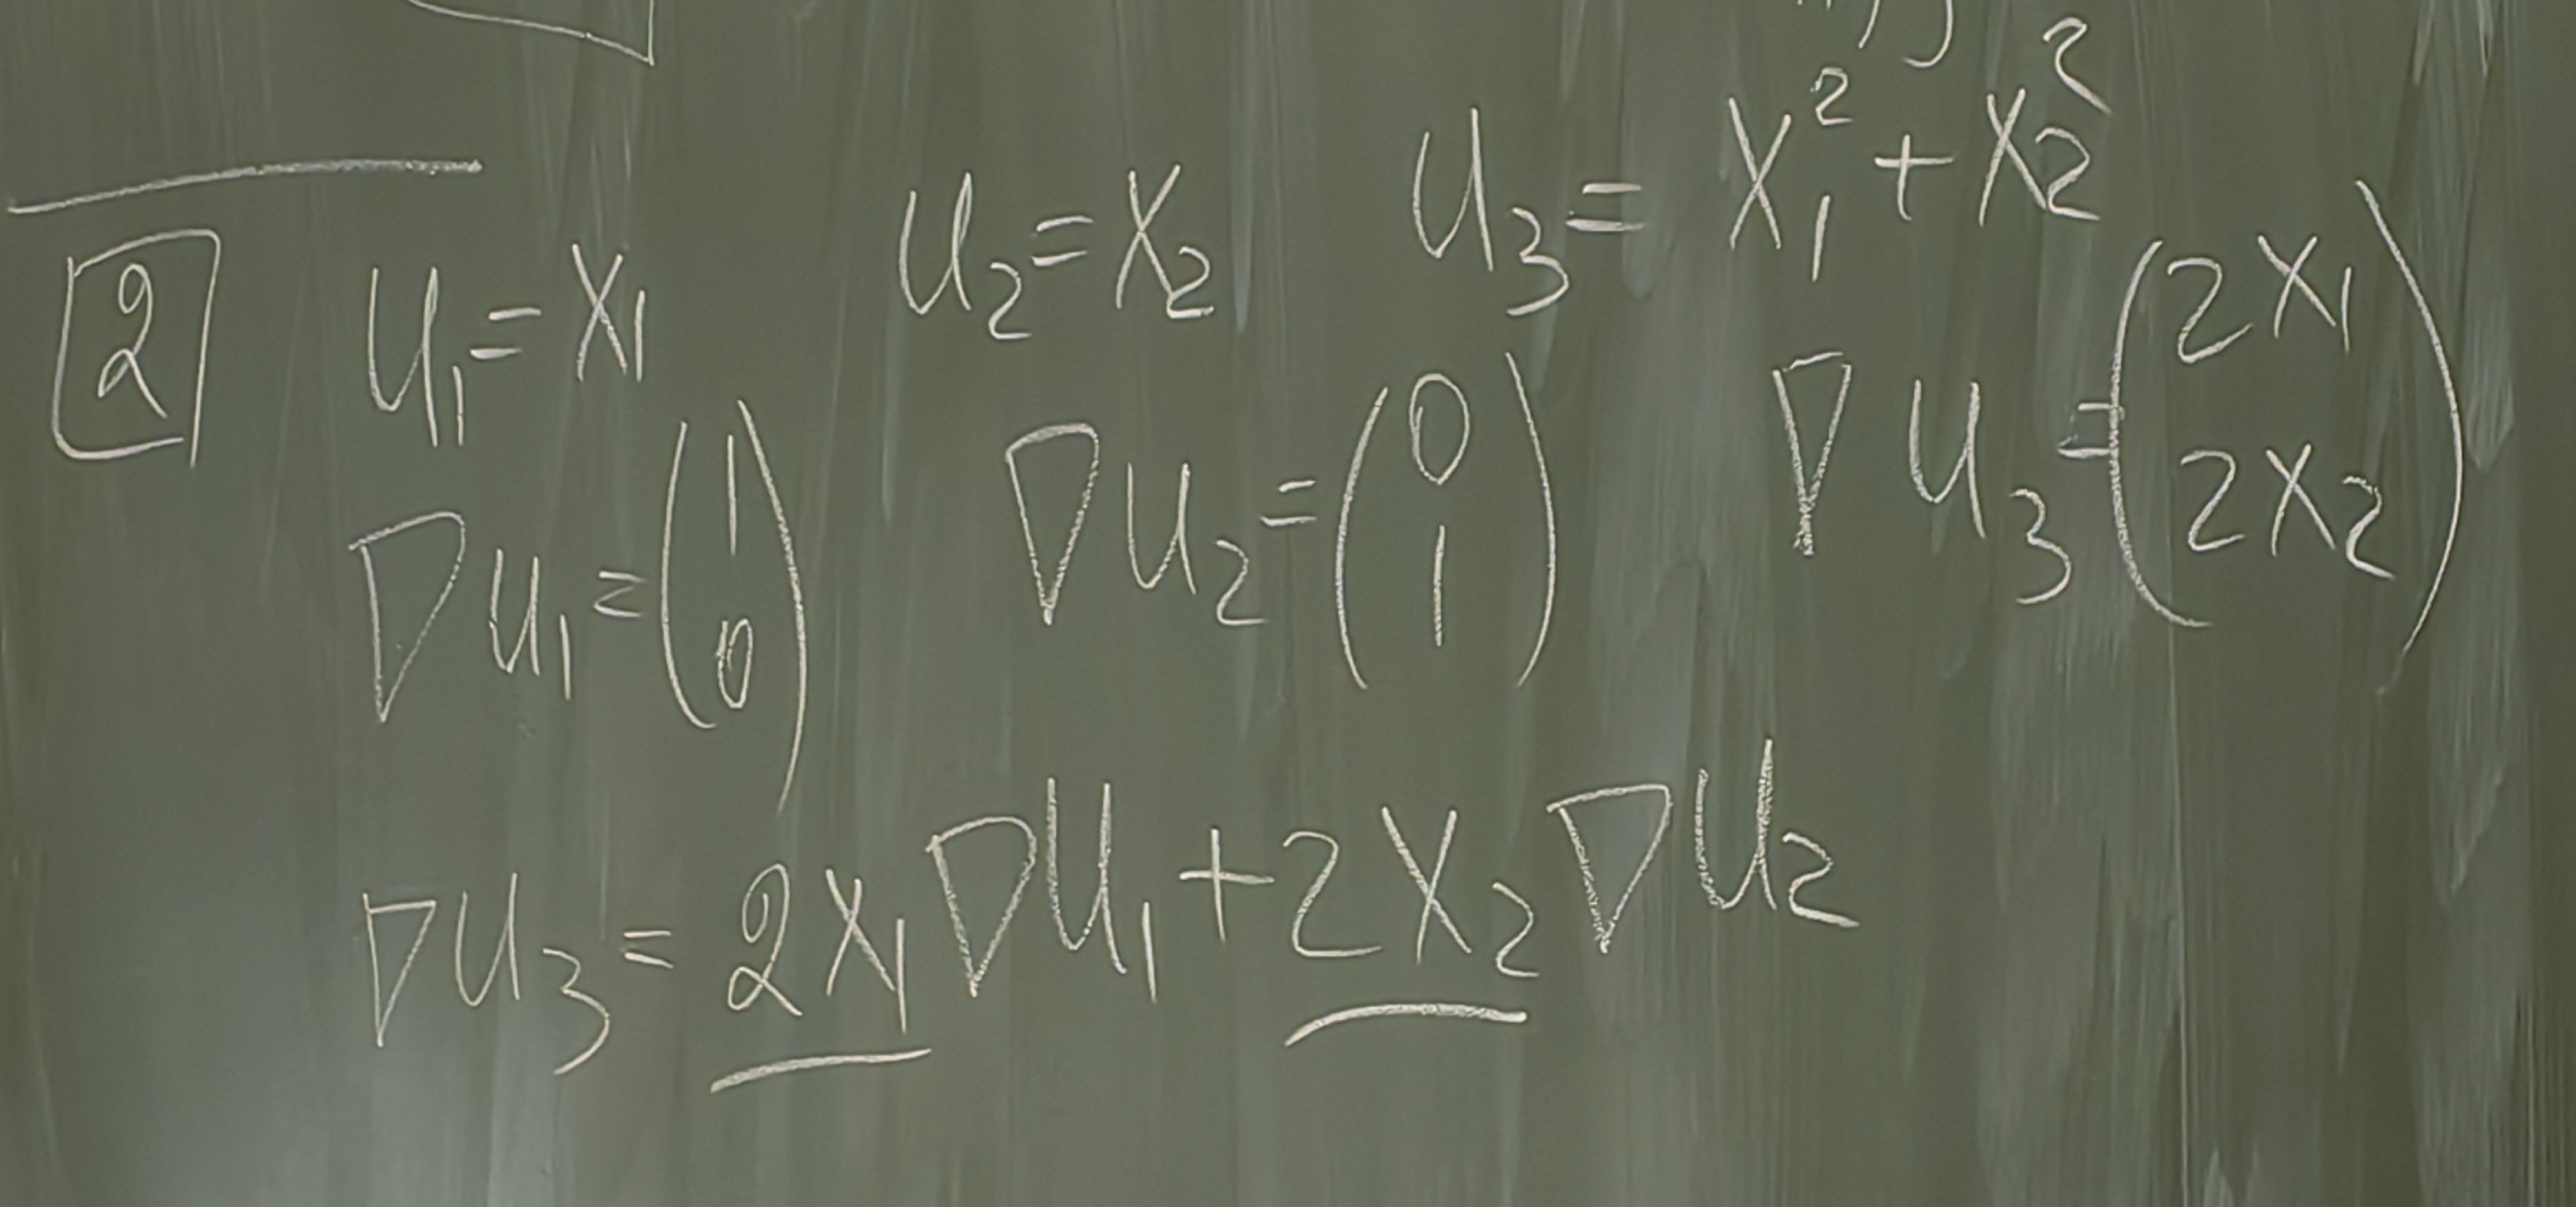 2 u₁ = x₁ u₂ = x₂ u₃ = x₁² + x₂²
∇u₁ = (1 0) ∇u₂ = (0 1) ∇u₃ = (2x₁ 2x₂)
∇u₃ = 2x₁∇u₁ + 2x₂∇u₂